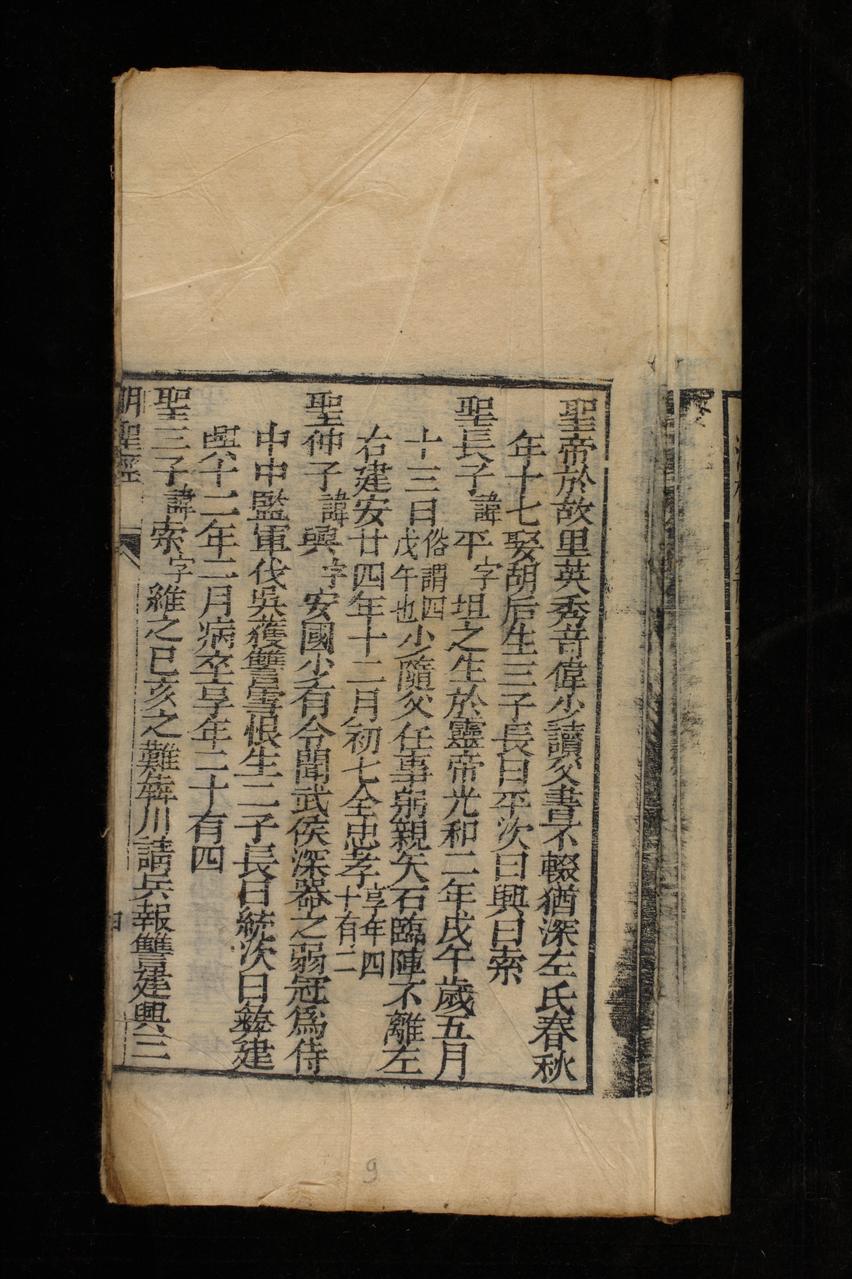 聖帝於故里英秀竒偉少讀父書不輟猶深左氏春秋
年十七娶胡后生三子長曰平次曰興曰索
聖長子諱平字坦之生於靈帝光和二年戊午歲五月
十三日俗謂四戊午也少隨父任事躬親矢石臨陣不離左
右建安廿四年十二月初七全忠孝享年四十有二
聖仲子諱興字安國少有令聞武侯深器之弱冠爲侍
中中監軍伐吳獲讐雪恨生二子長曰統次曰彝建
興十二年二月病卒享年二十有四
聖三子諱索字維之已亥之難犇川請兵報讐建興三
明聖經
四
9